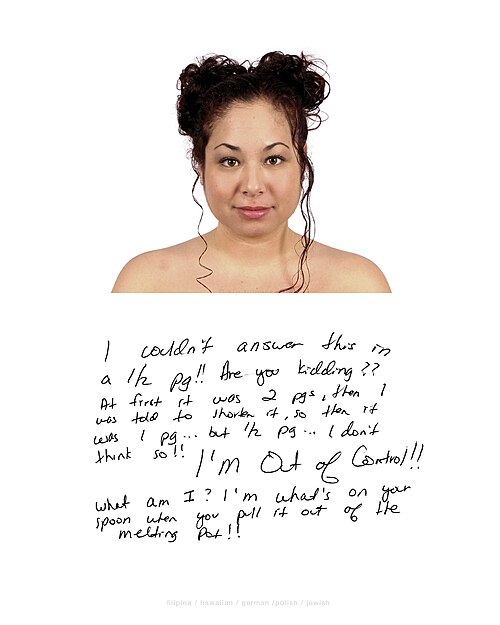 I couldn't answer this in
a 1/2 pg!! Are you kidding??
At first it was 2 pgs, then I
was told to shorten it, so then it
was 1 pg... but 1/2 pg... I don't
think so!! I'm Out of Control!!
What am I? I'm what's on your
spoon when you pull it out of the
melting pot!!
filipina / hawaiian / german /polish / jewish